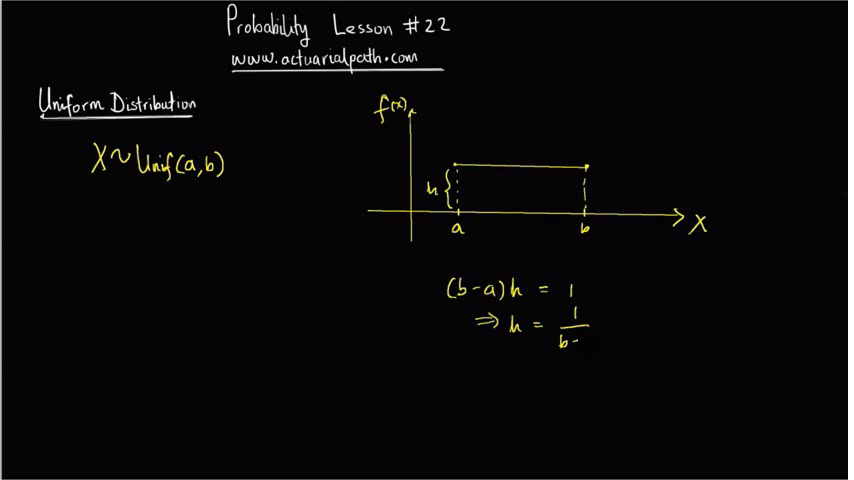 Probability Lesson #22
www.actuarialpath.com
Uniform Distribution
X~Unif(a,b)
f(x)
h
a
b
X
(b-a)h = 1
⇒ h = 1
b-